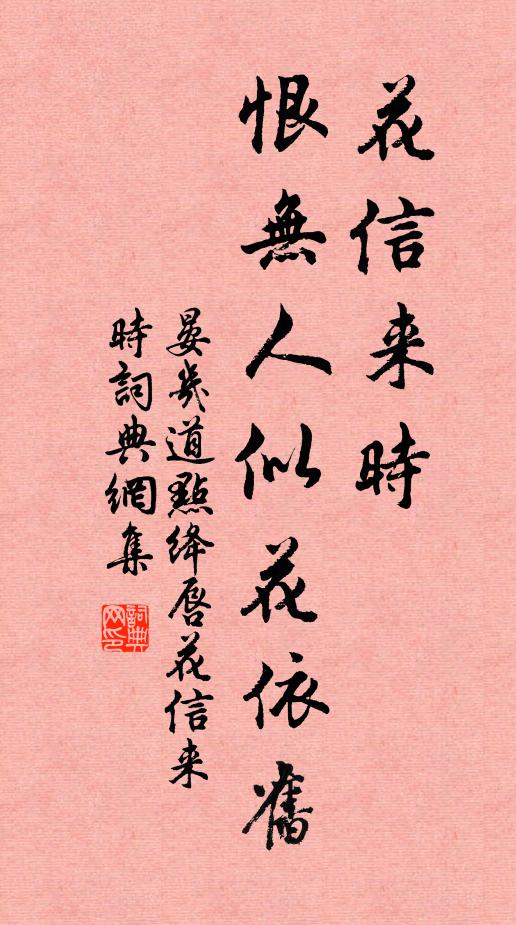 花信来時
恨無人似花依舊
晏幾道點绛唇花信来
時詞典網集
詞典网印